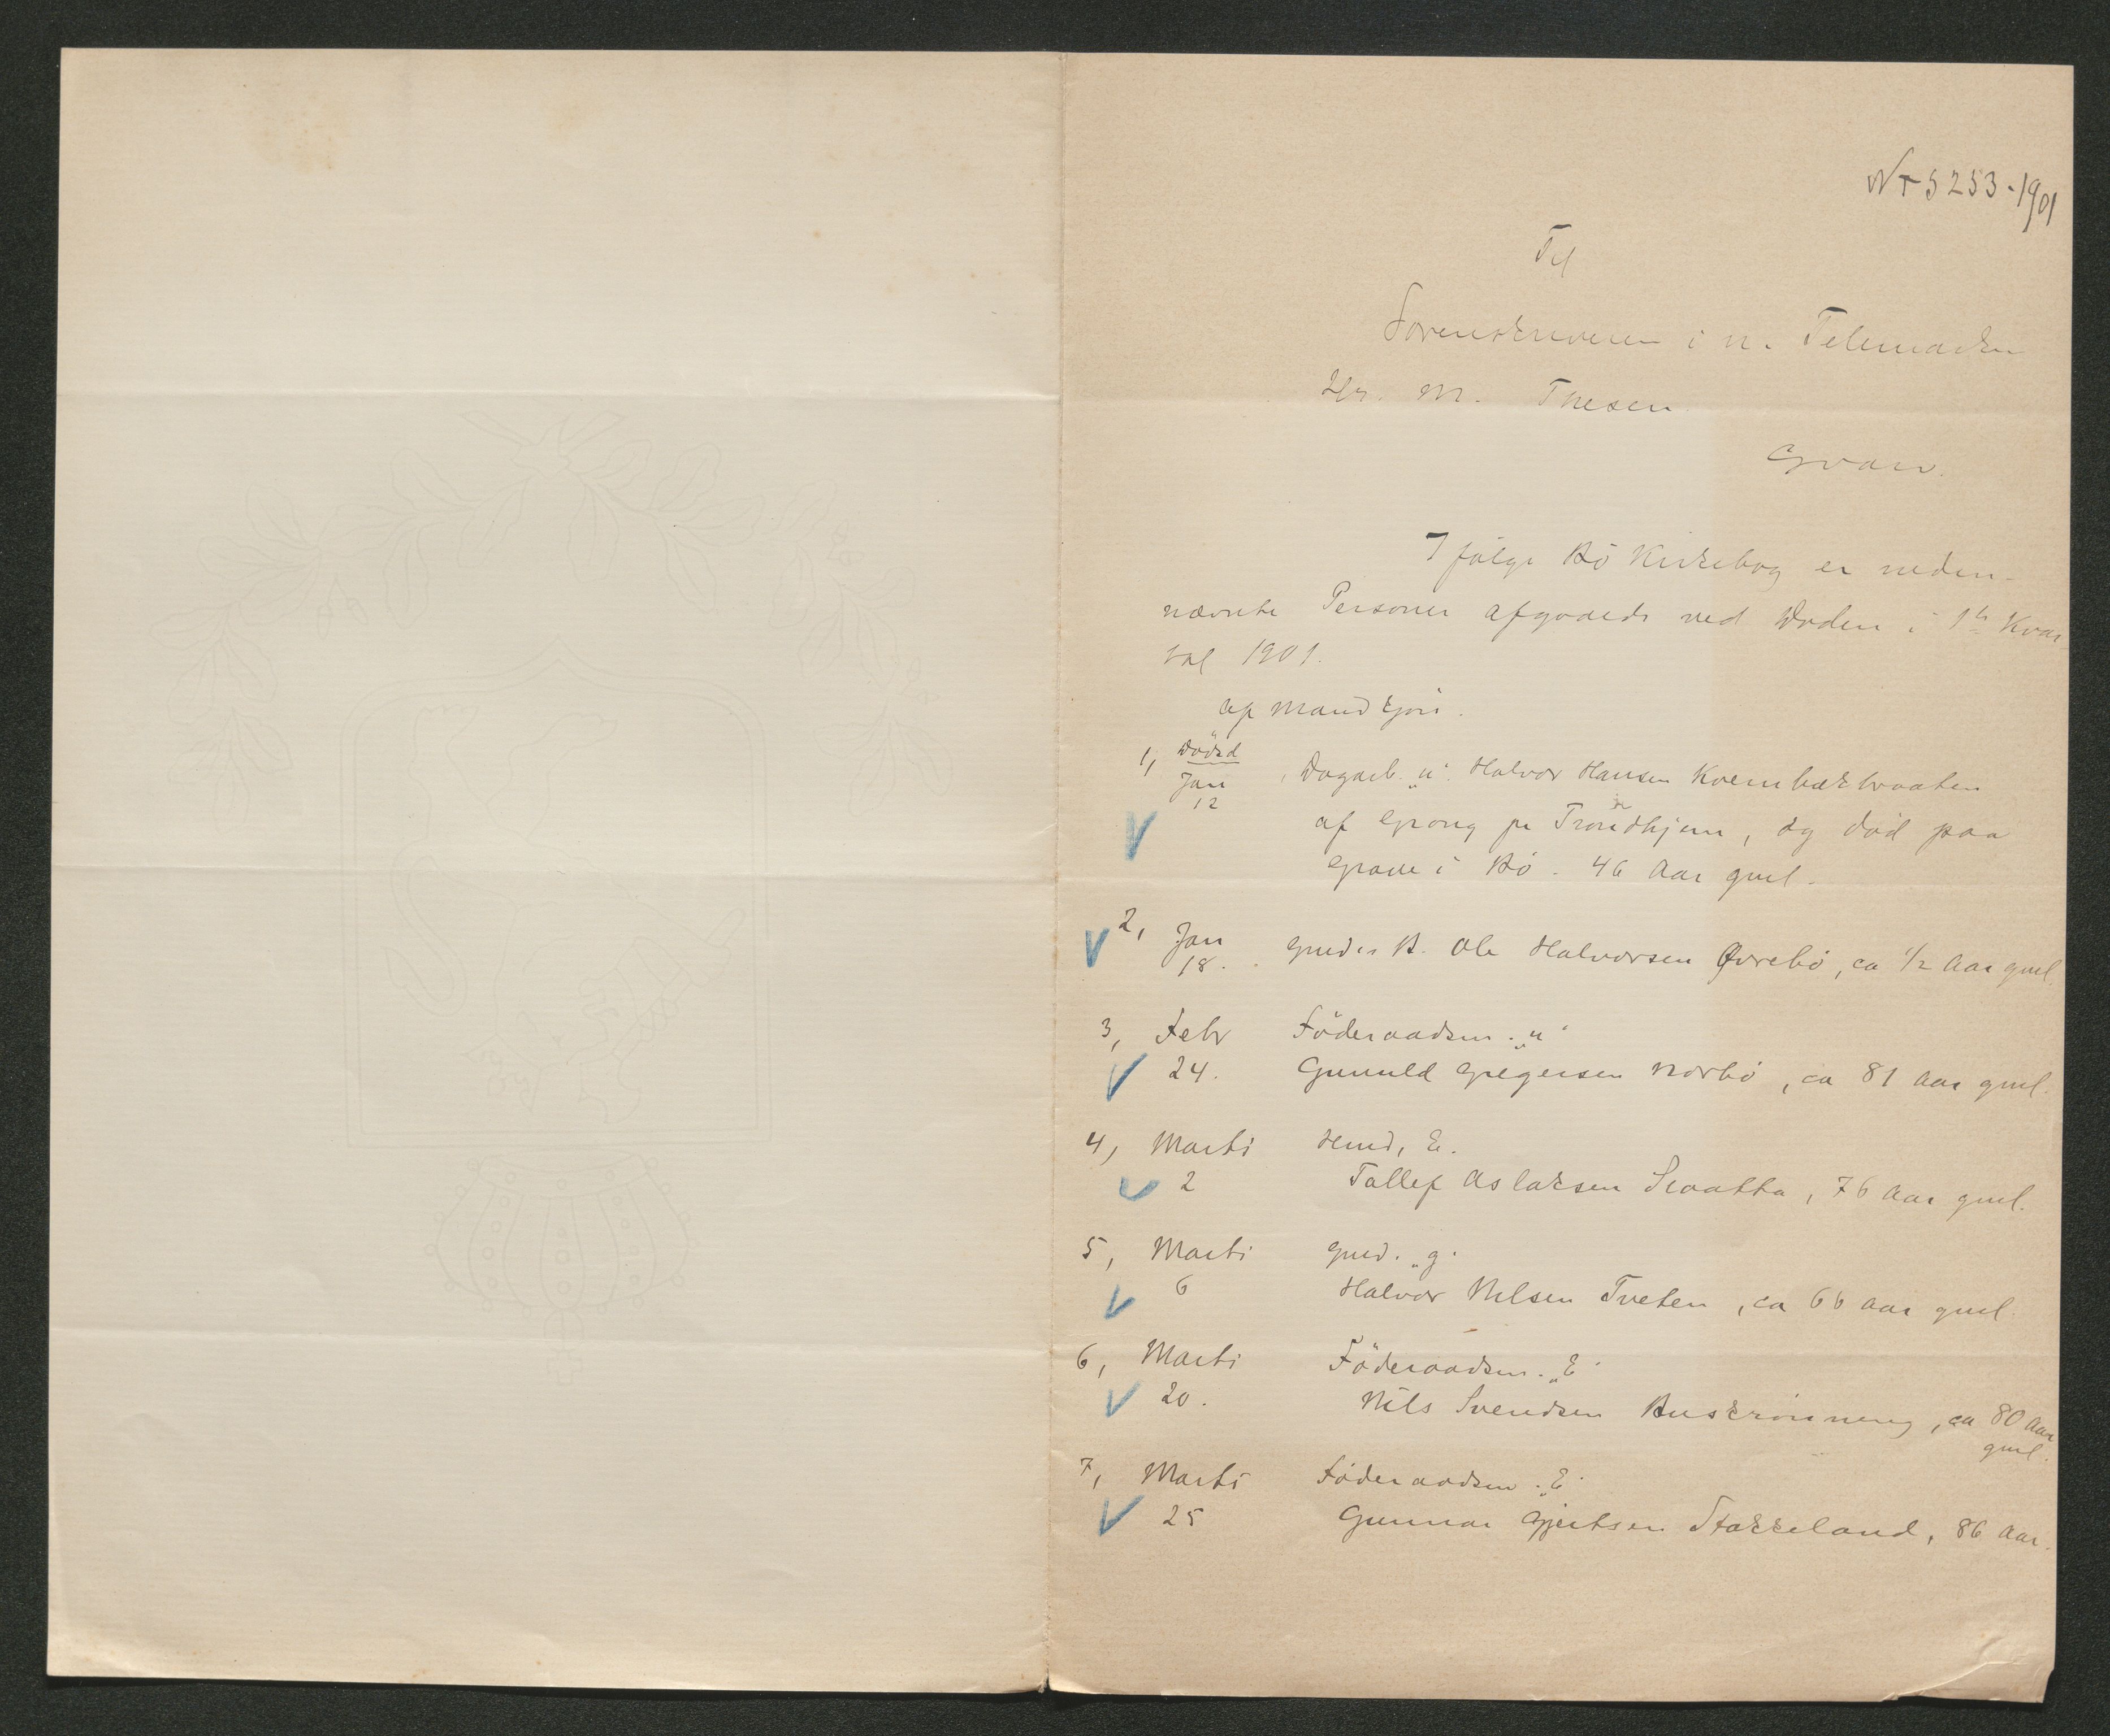 Nr 5253-1901
Til
Sorenskriveren i n. Telemarken
Hr. M. Thesen.
Gvarv.
Ifølge Bø Kirkebog er neden-
nævnte Personer afgaaede ved Døden i 1ste Kvar
tal 1901.
af Mandkjøn.
1, Dødsd Jan 12 Dagarb. "u". Halvor Hansen Kvernbækbraaten
af Grong pr Trondhjem, og død paa
Grave i Bø. 46 Aar gml.
2, Jan 18. Grudes B. Ole Halvorsen Øvrebø, ca 1/2 Aar gml.
3, Febr Föderaadsm. "u"
24. Gunuld Gregersen Norbø, ca 81 Aar gml.
4, Marts Husd, E.
2 Tallef Aslaksen Sraatta, 76 Aar gml.
5, Marts Grd. "g"
6 Halvor Nilsen Tveten, ca 66 Aar gml.
6, Marts Föderaadsm. "E"
20. Nils Svendsen Buskrønning, ca 80 Aar
gml.
7, Marts Föderaadsm. "E"
25 Gunnar Gjertsen Stokkeland, 86 Aar.